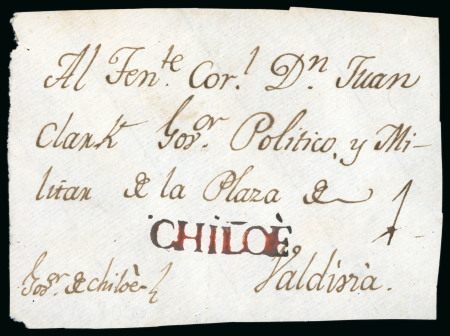 Al Ten.te Cor.l D.n Juan
Clark Gov.or Politico, y Mi-
litar de la Plaza de
CHILOÈ
Valdivia.
Gov.r de chiloè